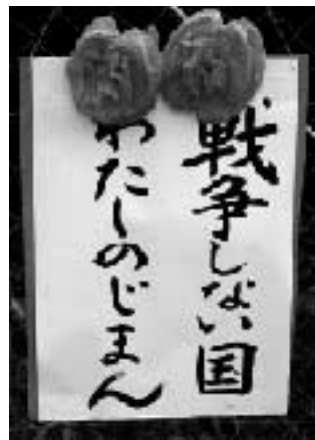 戦争しない国
わたしのじまん